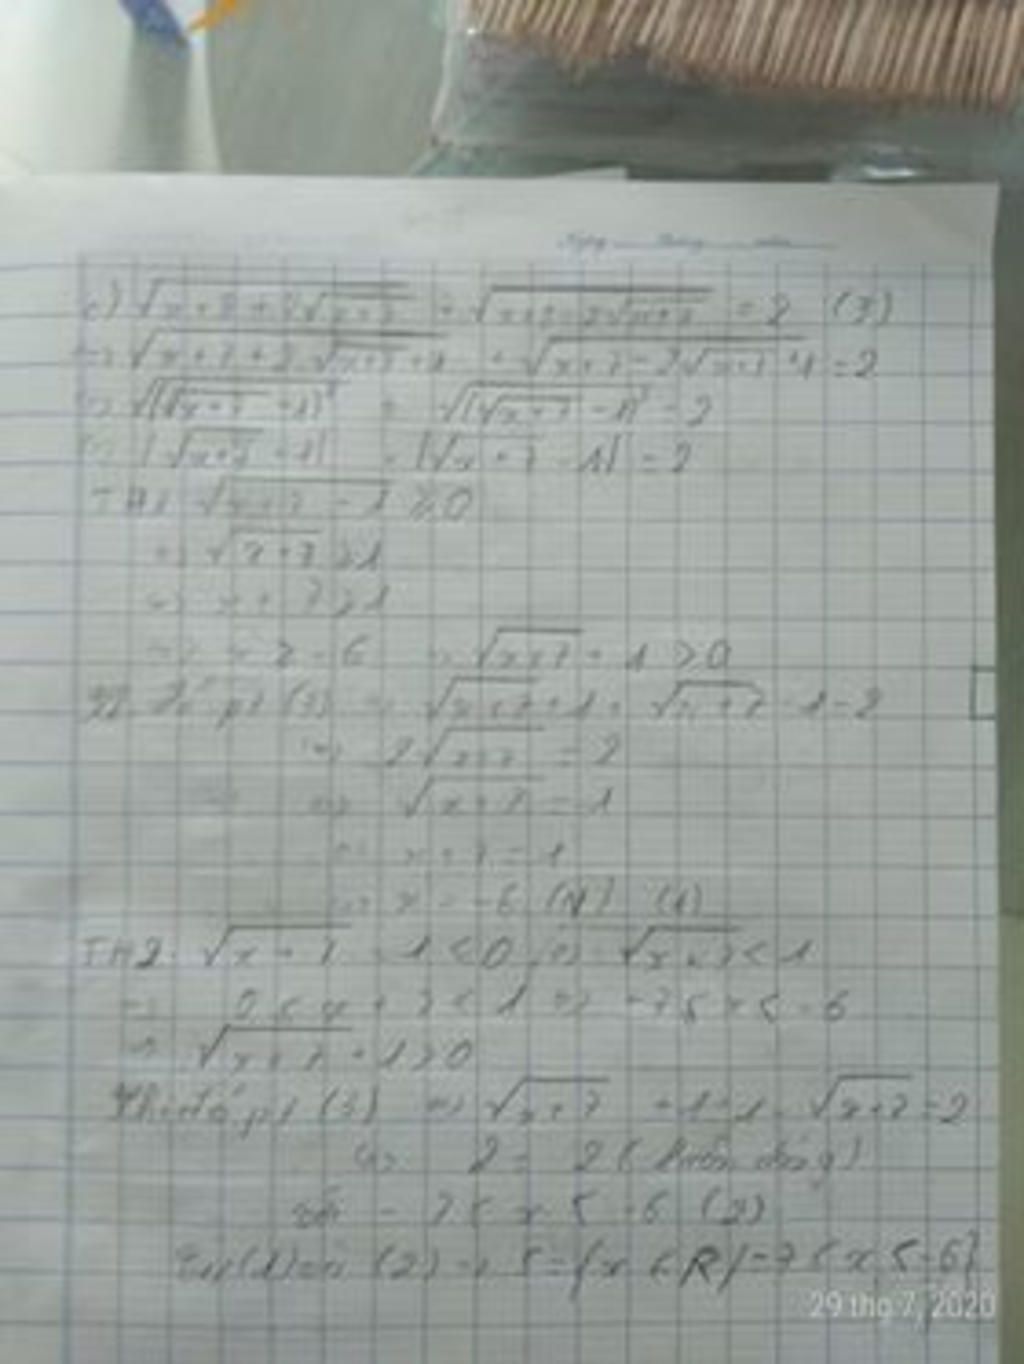 c) √(x+8+2√(x+7)) + √(x+8-2√(x+7)) = 2 (3)
⇔ √(x+7+2√(x+7)+1) + √(x+7-2√(x+7)+1) = 2
⇔ √((√(x+7)+1)²) + √((√(x+7)-1)²) = 2
⇔ |√(x+7)+1| + |√(x+7)-1| = 2
TH1: √(x+7) - 1 ≥ 0
⇔ √(x+7) ≥ 1
⇔ x + 7 ≥ 1
⇔ x ≥ -6 ⇒ √(x+7) + 1 > 0
pt (3) ⇔ √(x+7) + 1 + √(x+7) - 1 = 2
⇔ 2√(x+7) = 2
⇔ √(x+7) = 1
⇔ x + 7 = 1
⇔ x = -6 (N) (1)
TH2: √(x+7) - 1 < 0 ⇔ √(x+7) < 1
⇔ 0 ≤ x + 7 < 1 ⇔ -7 ≤ x < -6
⇒ √(x+7) + 1 > 0
Khi đó pt (3) ⇔ √(x+7) + 1 + 1 - √(x+7) = 2
⇔ 2 = 2 (luôn đúng)
-7 ≤ x ≤ -6 (2)
Từ (1) và (2) ⇒ S = {x ∈ R | -7 ≤ x ≤ -6}
29 thg 7, 2020